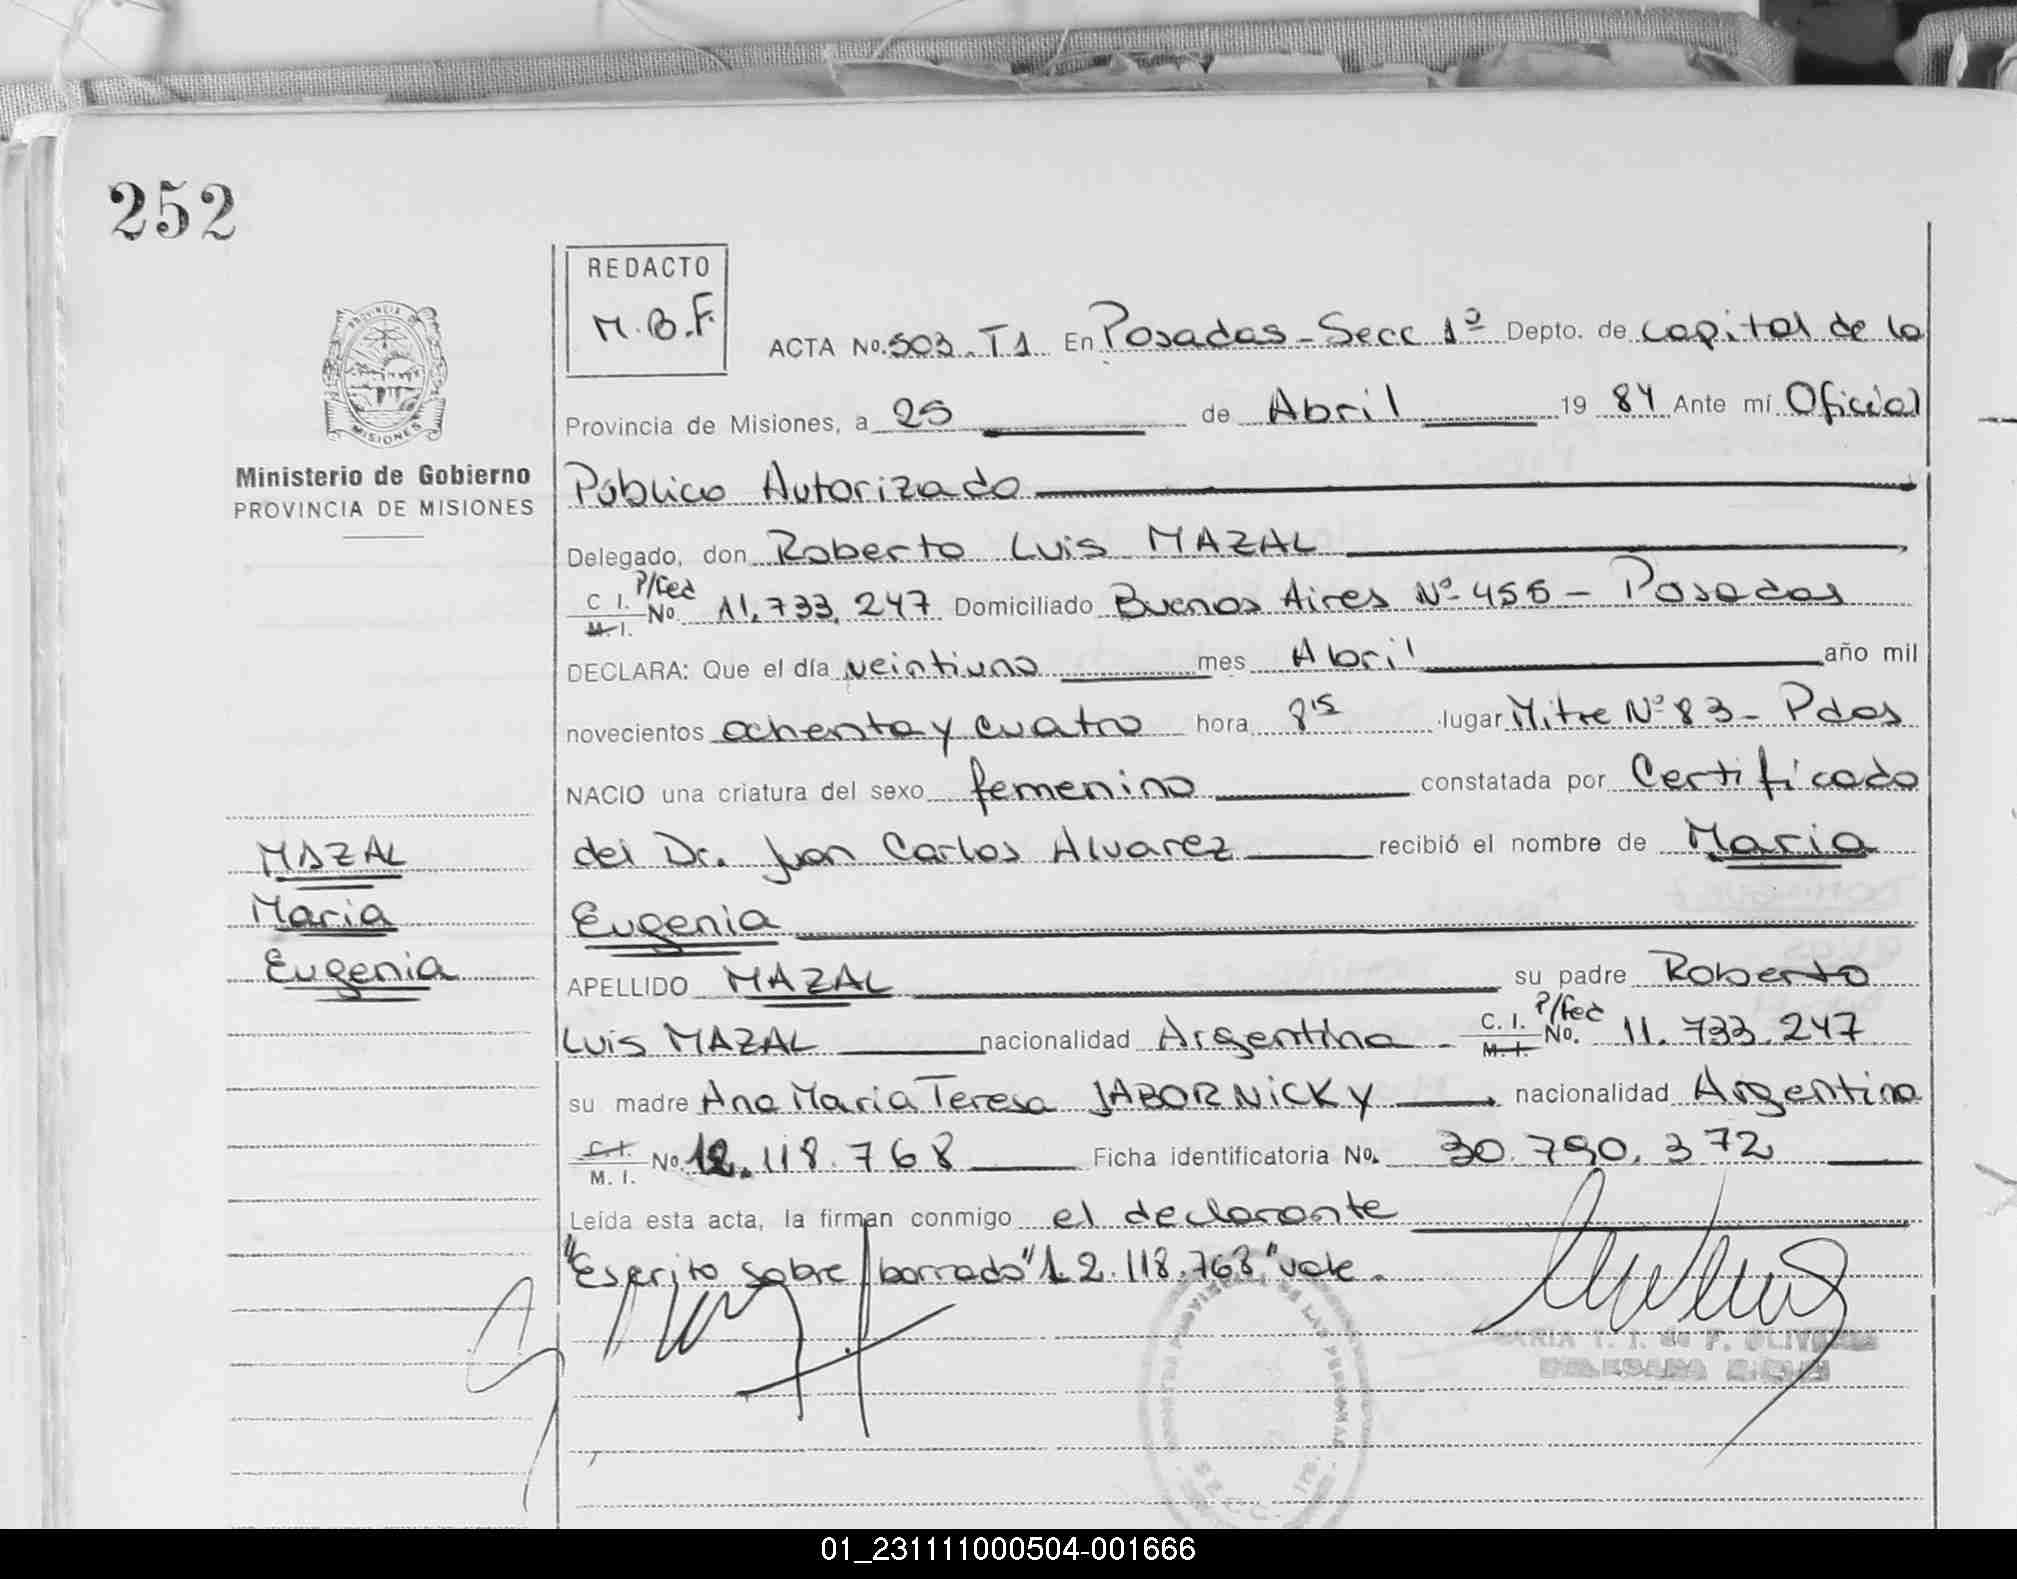 252
REDACTO
M.B.F.
ACTA No. 503. T1 En Posadas - Secc 1ª Depto. de capital de la
Provincia de Misiones, a 25 de Abril 19 84 Ante mí Oficial
PROVINCIA DE
MISIONES
Ministerio de Gobierno
PROVINCIA DE MISIONES
Público Autorizado
Delegado, don Roberto Luis MAZAL
C I. P/Fed
M. I. No. 11.733.247 Domiciliado Buenos Aires Nº 455 - Posadas
DECLARA: Que el día veintiuno mes Abril año mil
novecientos ochenta y cuatro hora 8 15 lugar Mitre Nº 83 - Pdas
NACIO una criatura del sexo femenino constatada por Certificado
del Dr. Juan Carlos Alvarez recibió el nombre de Maria
Eugenia
MAZAL
Maria
Eugenia
APELLIDO MAZAL su padre Roberto
Luis MAZAL nacionalidad Argentina - C. I. P/Fed
M. I. No. 11.733.247
su madre Ana Maria Teresa JABORNICKY nacionalidad Argentina
C. I.
M. I. No. 12.118.768 Ficha identificatoria No. 30.790.372
Leída esta acta, la firman conmigo el declarante
"Escrito sobre borrado" 12.118.768 "vale.
MARIA T. I. de P. OLIVEIRA
DE LAS PERSONAS
01_231111000504-001666